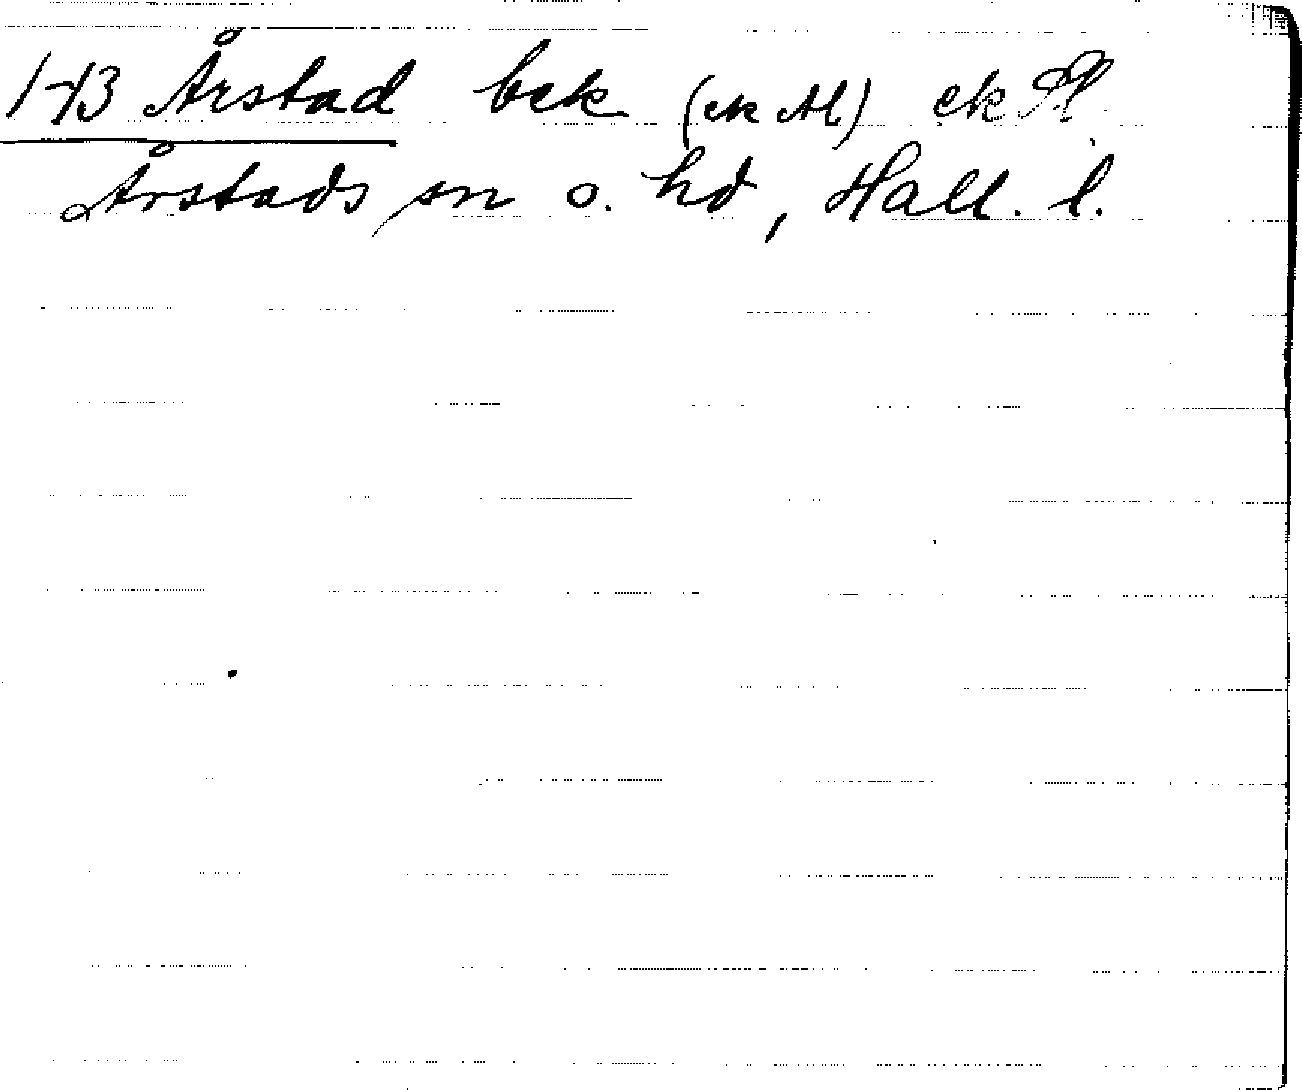 1-13 Årstad bek (ek Al) ek Al
Årstads sn o. hd, Hall. l.